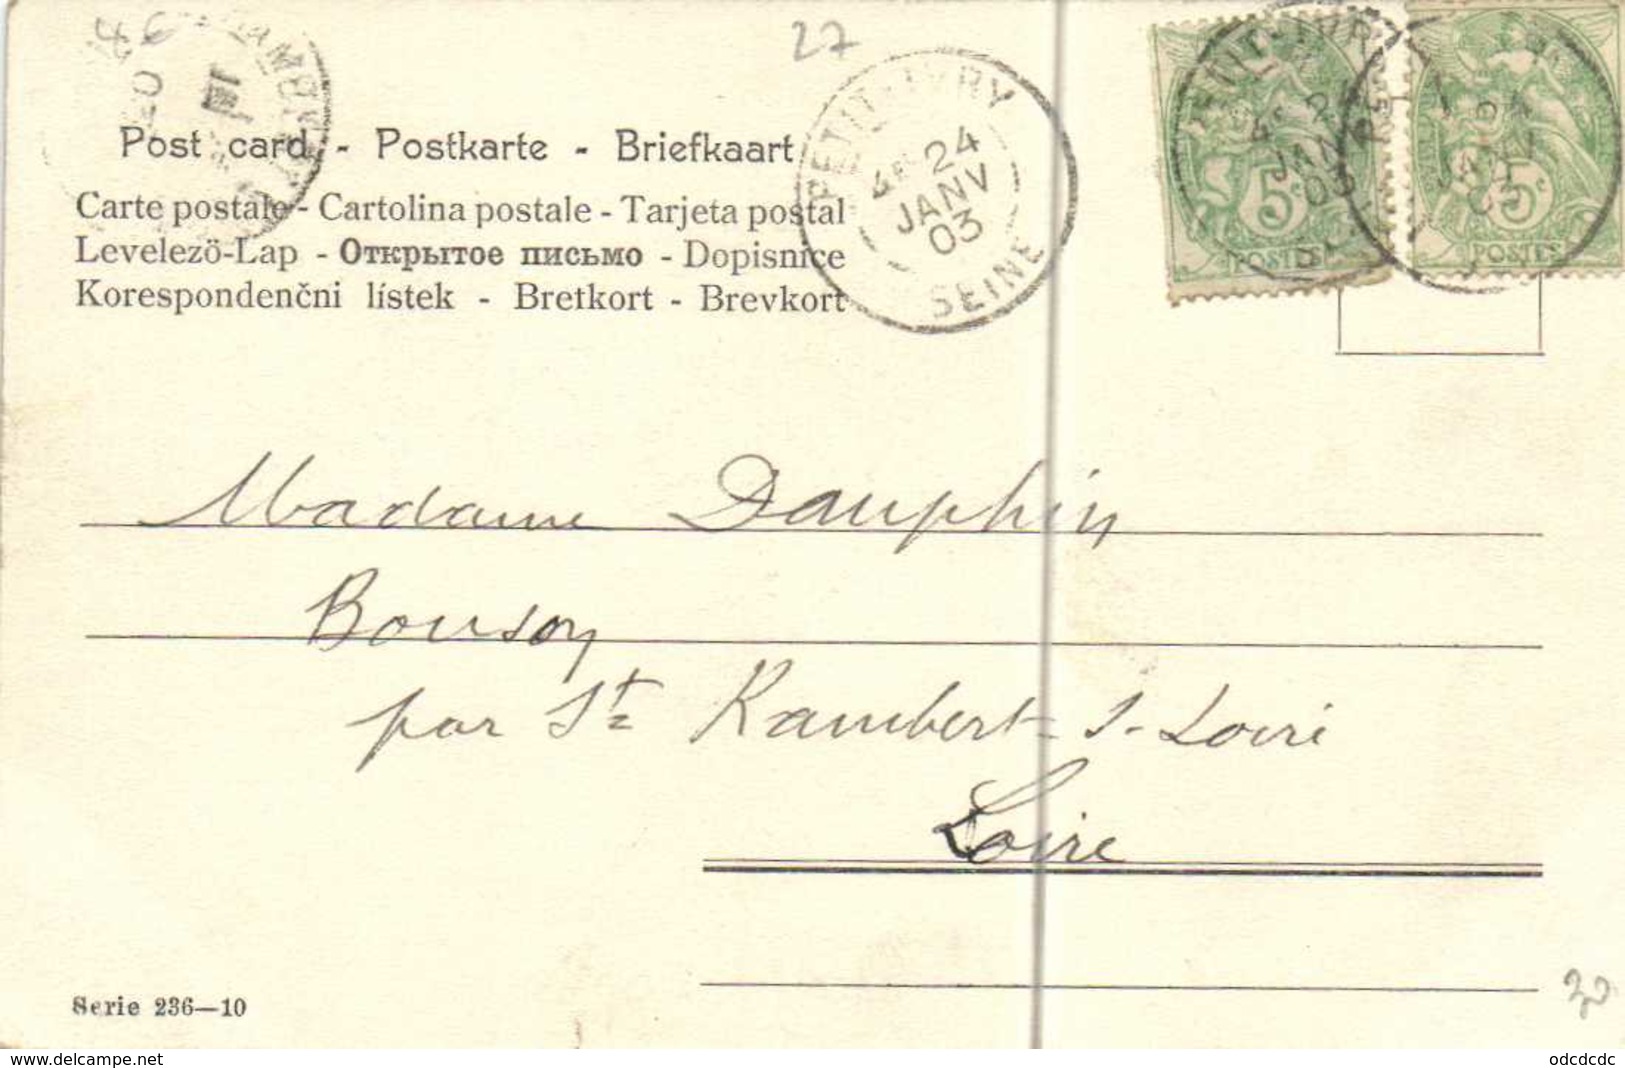 27
Post card - Postkarte - Briefkaart
Carte postale - Cartolina postale - Tarjeta postal
Levelezö-Lap - Открытое письмо - Dopisnice
Korespondenčni lístek - Bretkort - Brevkort
PETIT-IVRY
4E 24
JANV
03
SEINE
5c
POSTES
5c
POSTES
Madame Dauphin
Bouson
par St Rambert-s-Loire
Loire
Serie 236—10
www.delcampe.net
odcdcdc